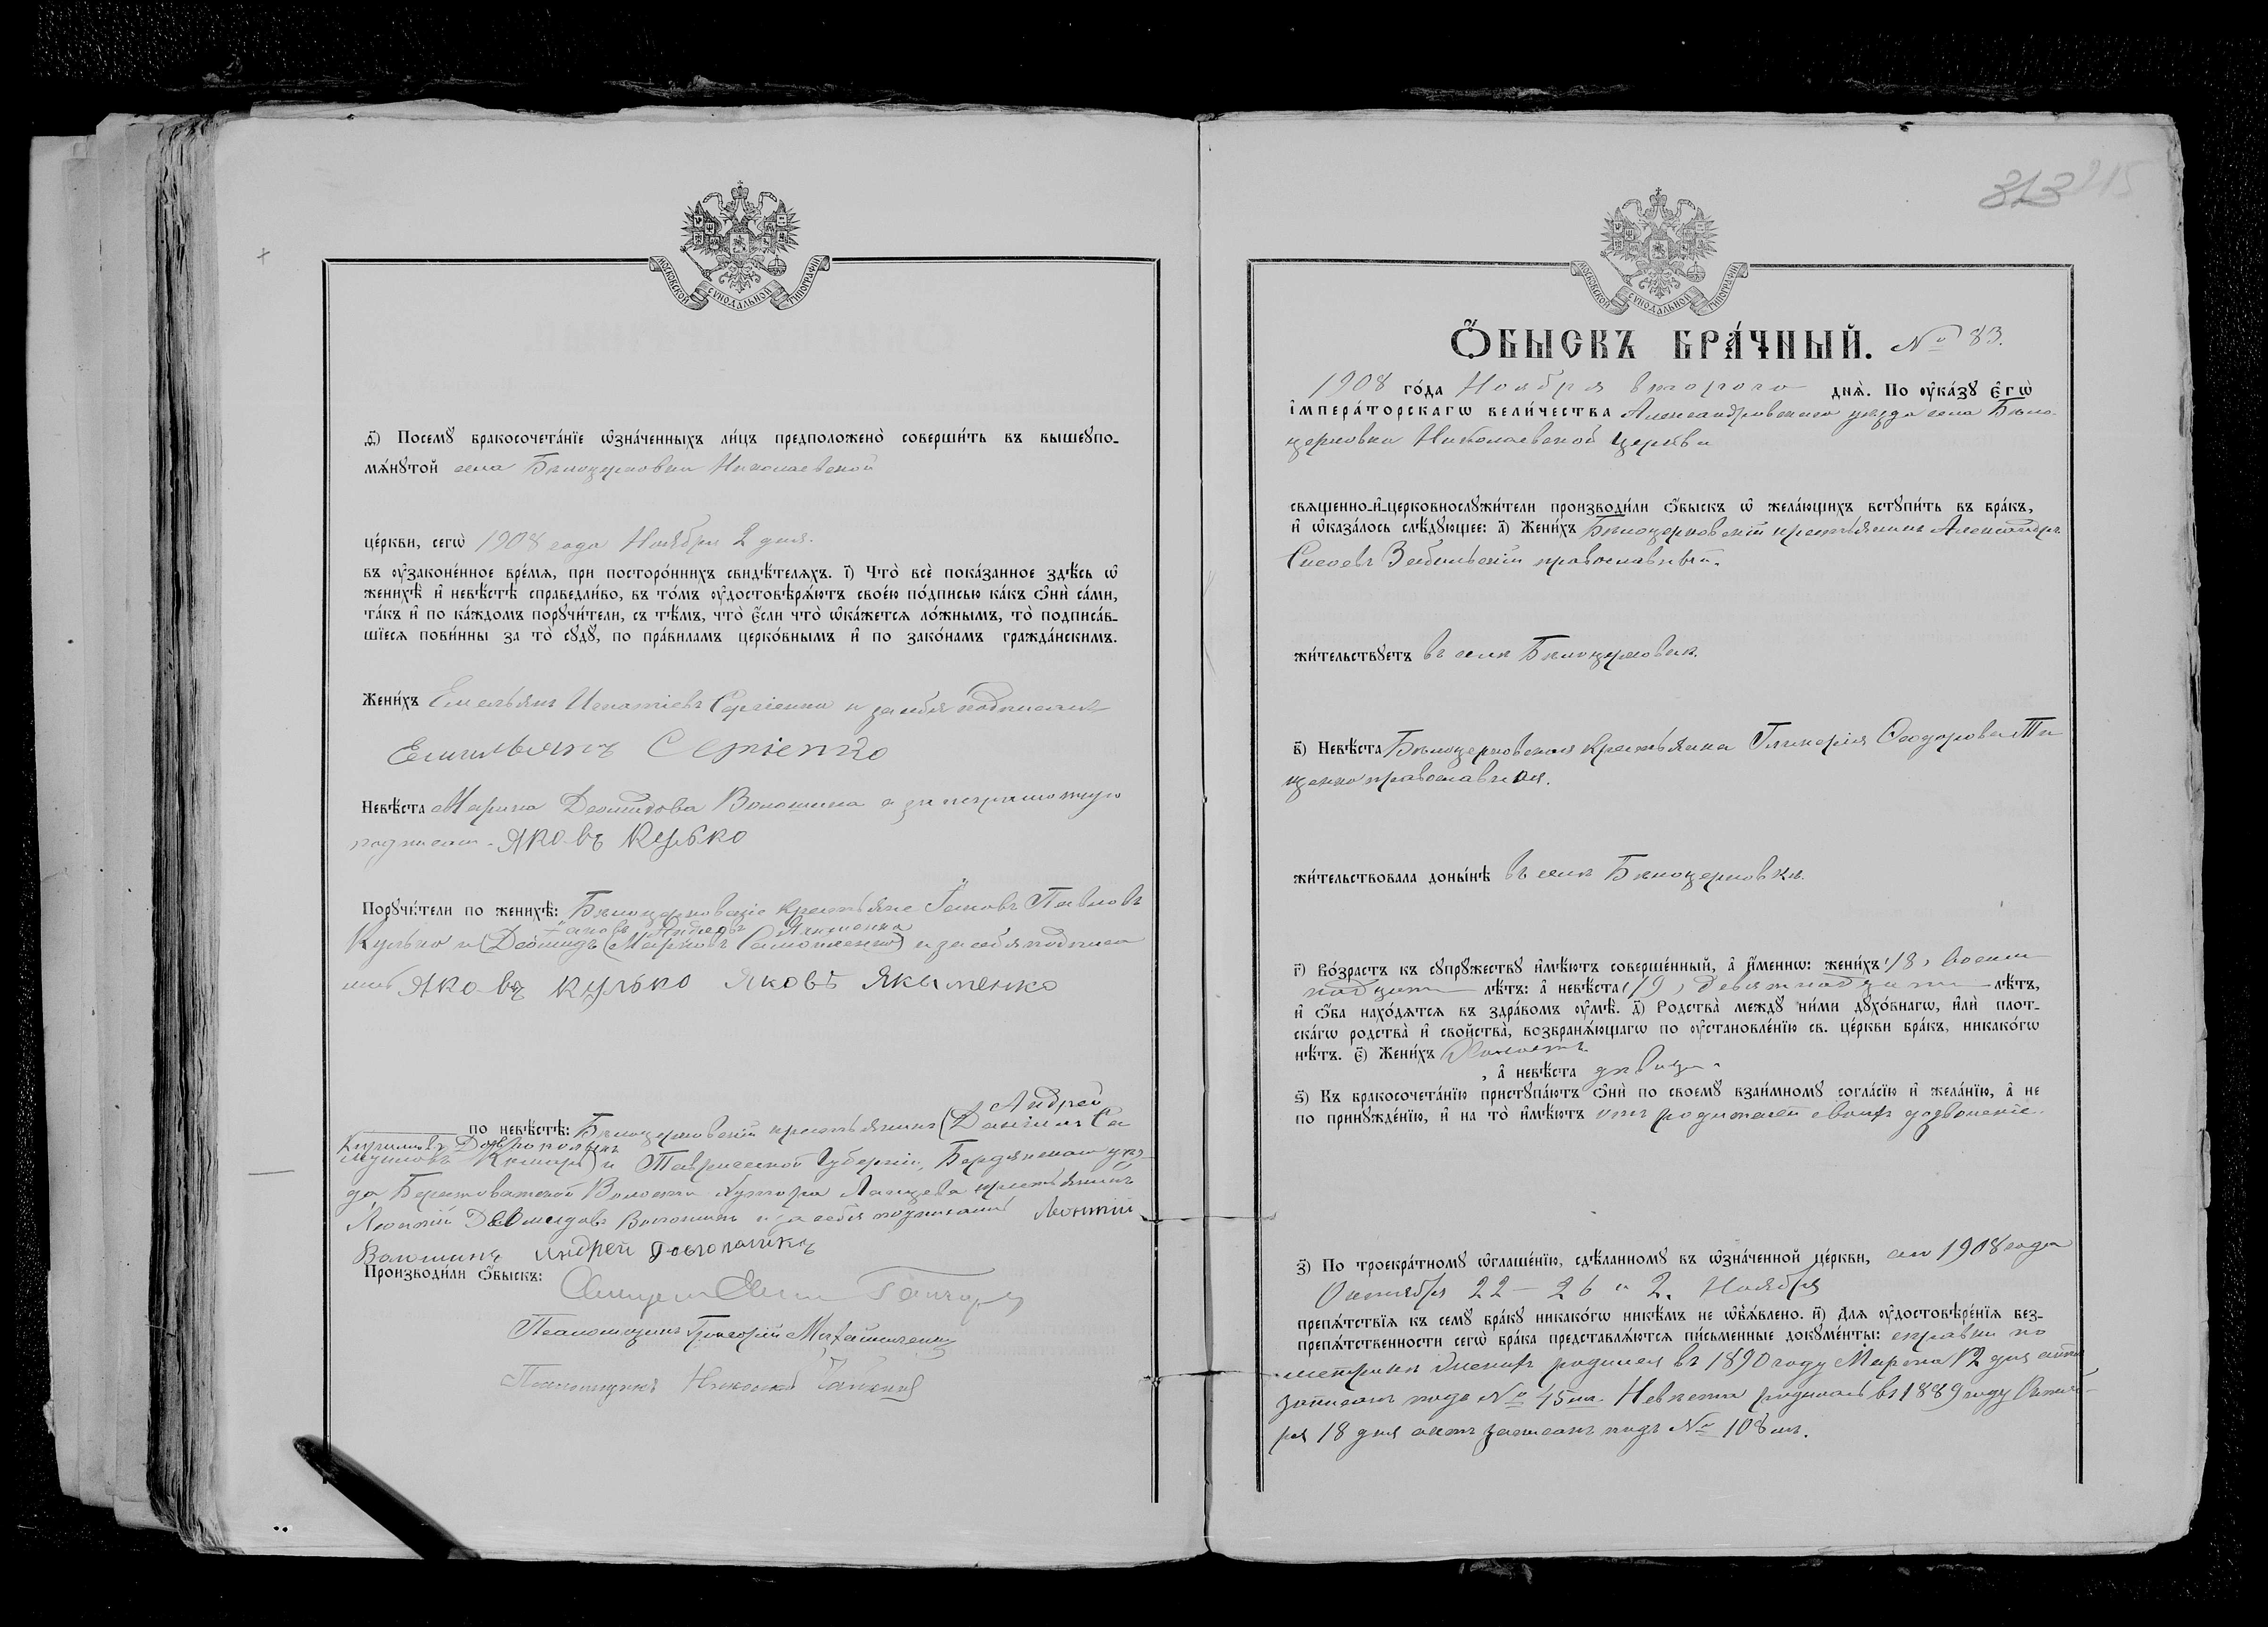 МОСКОВСКОЙ СѴНОДАЛЬНОЙ ТИПОГРАФІИ
ѳ҃) Посемꙋ̀ бракосочета́нїе ѡ҆зна́ченныхъ ли́цъ предположено̀ соверши́ть въ вышеꙋпо-
мѧ́нꙋтой села Бѣлоцерковки Николаевской
це́ркви, сегѡ̀ 1908 года Ноября 2 дня.
въ ᲂу҆зако́ненное вре́мѧ, при посторо́ннихъ свидѣ́телѧхъ. і҃) Что̀ всѐ пока́занное здѣ́сь ѡ҆
женихѣ̀ и҆ невѣ́стѣ справедли́во, въ то́мъ ᲂу҆достовѣрѧ́ютъ свое́ю по́дписью ка́къ ѻ҆нѝ са́ми,
та́къ и҆ по ка́ждомъ порꙋчи́тели, съ тѣ́мъ, что̀ є҆́сли что̀ ѡ҆ка́жетсѧ ло́жнымъ, то̀ подписа́в-
шїесѧ пови́нны за то̀ сꙋдꙋ̀, по пра́виламъ церко́внымъ и҆ по зако́намъ гражда́нскимъ.
Жени́хъ Емельянъ Игнатіевъ Сергіенко и за себя подписался
Емельянъ Сергіенко
Невѣ́ста Марина Деомидова Волошина а за неграмотную
подписался Яковъ Кулько
Порꙋчи́тели по женихѣ̀: Бѣлоцерковскіе крестьяне Іаковъ Павловъ
Іаковъ Андреевъ Якименко
Кулько и (Деомидъ Марковъ Самойленко) и за себя подписа
лись Яковъ Кулько Яковъ Якименко
Андрей
по невѣ́стѣ: Бѣлоцерковскій крестьянинъ (Даніилъ Са
Кирилловъ
муиловъ Кушнир) и Таврической Губерніи, Бердянскаго уѣз-
да Берестоватской Волости Хутора крестьянинъ
Леонтій Деомидовъ Волошинъ и за себя подписались Леонтій
Волошинъ Андрей
Производи́ли ѻ҆́быскъ:
Священникъ
Псаломщикъ Григорій
Псаломщикъ Николай
313 215
МОСКОВСКОЙ СѴНОДАЛЬНОЙ ТИПОГРАФІИ
Ѻ҆́БЫСКЪ БРА́ЧНЫЙ. № 83.
1908 го́да Ноября второго днѧ̀. По ᲂу҆ка́зꙋ Є҆гѡ̀
і҆мпера́торскагѡ вели́чества Александровскаго уѣзда села Бѣло-
церковки Николаевской Церкви
свѧщенно-и҆-церковнослꙋжи́тели производи́ли ѻ҆́быскъ ѡ҆ жела́ющихъ вступи́ть въ бра́къ,
и҆ ѡ҆каза́лось слѣ́дꙋющее: а҃) Жени́хъ Бѣлоцерковскій крестьянинъ Александръ
Сисоевъ православный.
жи́тельствꙋетъ въ селѣ Бѣлоцерковкѣ.
в҃) Невѣ́ста Бѣлоцерковская крестьянка Гликерія Ѳеодорова Ти
щенко православная.
жи́тельствовала доны́нѣ въ селѣ Бѣлоцерковкѣ.
г҃) Во́зрастъ къ сꙋпрꙋ́жествꙋ и҆мѣ́ютъ соверше́нный, а҆ и҆́меннѡ: жени́хъ (18) восем
надцати лѣ́тъ: а҆ невѣ́ста (19) девятнадцати лѣ́тъ,
и҆ ѻ҆́ба нахо́дѧтсѧ въ здра́вомъ ᲂу҆мѣ̀. д҃) Родства̀ междꙋ̀ ни́ми дꙋхо́внагѡ, и҆лѝ плот-
ска́гѡ родства̀ и҆ свойства̀, возбранѧ́ющагѡ по ᲂу҆становле́нїю св. це́ркви бра́къ, никако́гѡ
нѣ́тъ. є҃) Жени́хъ Холостъ
, а҆ невѣ́ста дѣвица.
ѕ҃) Къ бракосочета́нїю пристꙋпа́ютъ ѻ҆нѝ по своемꙋ̀ взаи́мномꙋ согла́сїю и҆ жела́нїю, а҆ не
по принꙋжде́нїю, и҆ на то̀ и҆мѣ́ютъ отъ родителей своихъ дозволеніе.
з҃) По троекра́тномꙋ ѡ҆глаше́нїю, сдѣ́ланномꙋ въ ѡ҆зна́ченной це́ркви, 1908 года
Октября 22 – 26 и 2. Ноября
препѧ́тствїѧ къ семꙋ̀ бра́кꙋ никако́гѡ никѣ́мъ не ѡ҆б̾ѧ́влено. и҃) Длѧ ᲂу҆достовѣре́нїѧ без-
препѧ́тственности сегѡ̀ бра́ка представлѧ́ютсѧ пи́сьменные докꙋме́нты: справки по
метрикѣ женихъ родился въ 1890 году Марта 12 дня актъ
записанъ подъ № 45мъ. Невѣста родилась въ 1889 году Октяб-
ря 18 дня актъ записанъ подъ № 108мъ.